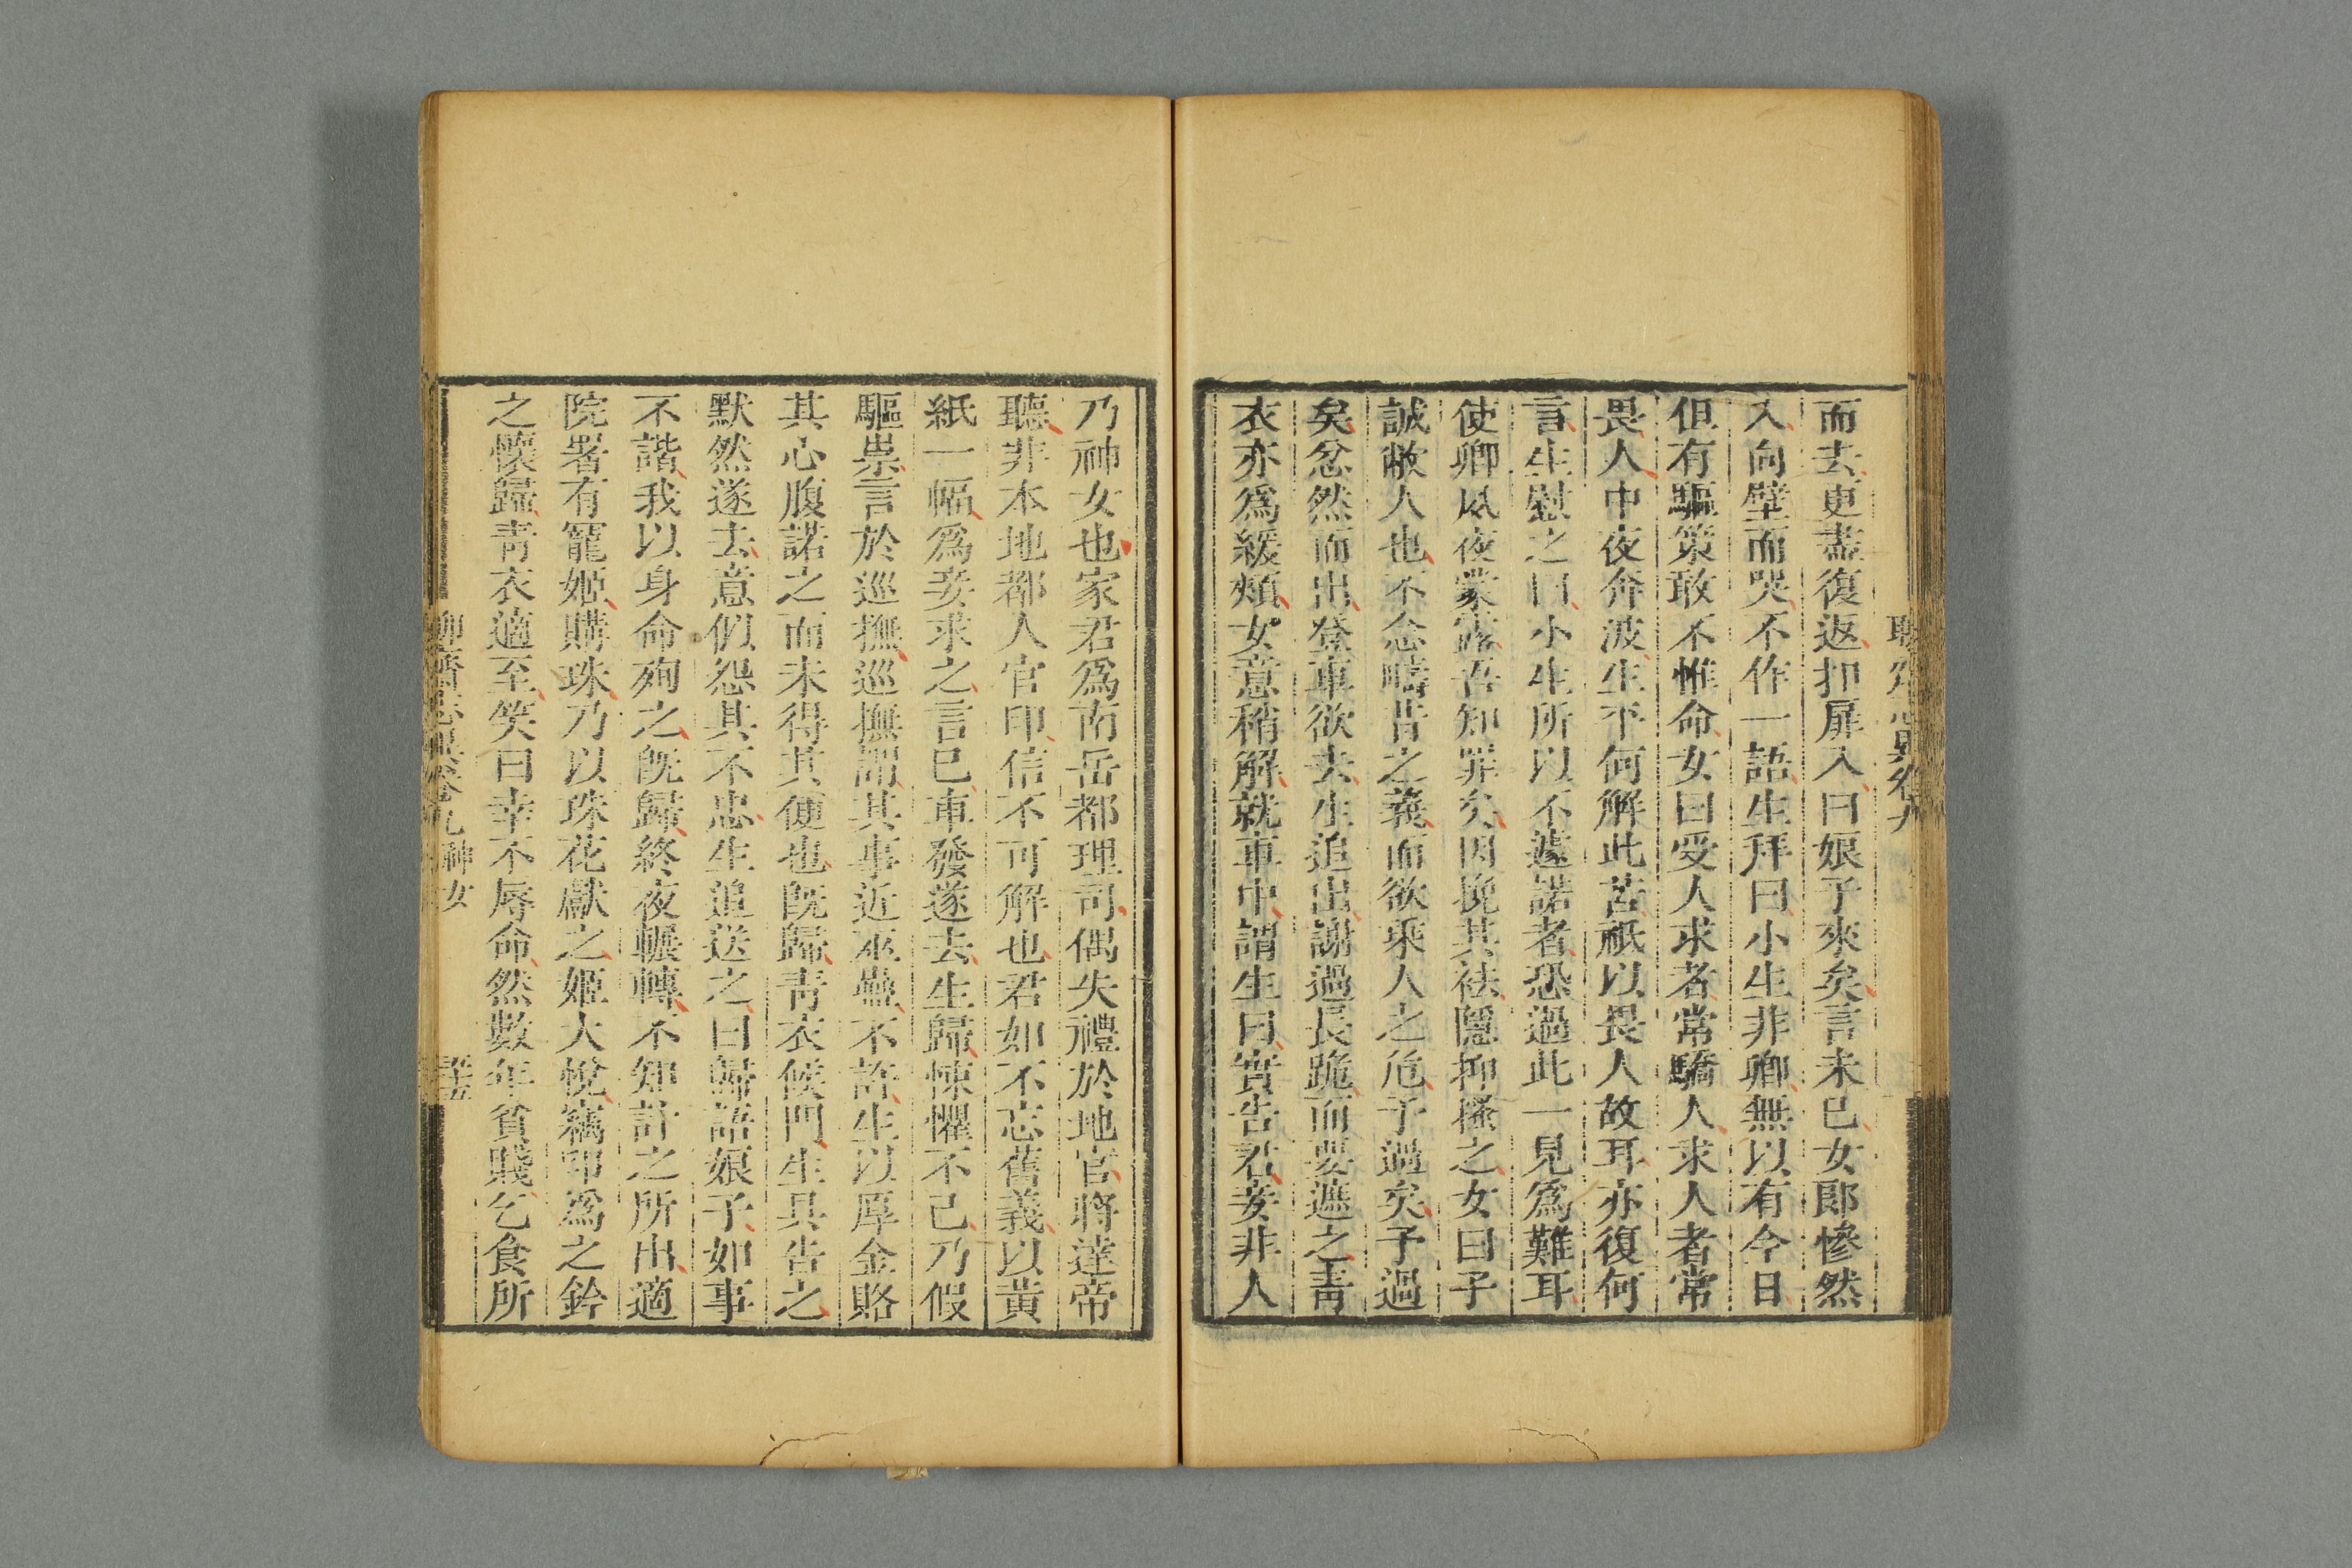 而去更盡復返扣扉入曰娘子來矣言未已女郎慘然
入向壁而哭不作一語生拜曰小生非卿無以有今日
但有驅策敢不惟命女曰受人求者常驕人求人者常
畏人中夜奔波生平何解此苦祇以畏人故耳亦復何
言生慰之曰小生所以不遽諾者恐過此一見爲難耳
使卿夙夜蒙露吾知罪矣因挽其袪隱抑搔之女曰子
誠敝人也不念疇昔之義而欲乘人之危予過矣予過
矣忿然而出登車欲去生追出謝過長跪而要遮之靑
衣亦爲緩頰女意稍解就車中謂生曰實告君妾非人
乃神女也家君爲南岳都理司偶失禮於地官將達帝
聽非本地都人官印信不可解也君如不忘舊義以黃
紙一幅爲妾求之言已車發遂去生歸悚懼不已乃假
驅祟言於巡撫巡撫謂其事近巫蠱不許生以厚金賂
其心腹諾之而未得其便也旣歸靑衣候門生具告之
默然遂去意似怨其不忠生追送之曰歸語娘子如事
不諧我以身命殉之旣歸終夜輾轉不知計之所出適
院署有寵姬購珠乃以珠花獻之姬大悅竊印爲之鈐
之懷歸靑衣適至笑曰幸不辱命然數年貧賤乞食所
聊齋志異卷九 神女